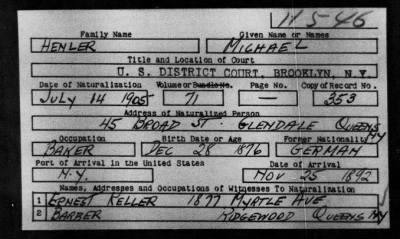 H-546
Family Name Given Name or Names
HENLER MICHAEL
Title and Location of Court
U. S. DISTRICT COURT, BROOKLYN, N.Y.
Date of Naturalization Volume or Bundle No. Page No. Copy of Record No.
JULY 14 1905 71 — 353
Address of Naturalized Person
45 BROAD ST. GLENDALE QUEENS NY
Occupation Birth Date or Age Former Nationality
BAKER DEC 28 1876 GERMAN
Port of Arrival in the United States Date of Arrival
N.Y. NOV 25 1892
Names, Addresses and Occupations of Witnesses To Naturalization
1 ERNEST KELLER 1877 MYRTLE AVE,
2 BARBER RIDGEWOOD QUEENS NY